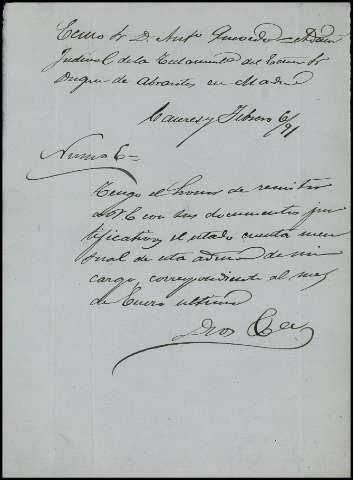 Excmo Sr D. Antº Quevedo = Admor
Judicial de la Testamentª del Excmo Sr
Duque de Abrantes en Madrid
Caceres y Febrero 6/91
Numº 6=
Tengo el honor de remitir
á VE con sus documentos jus
tificativos el estado cuenta men
sual de esta admon de mi
cargo, correspondiente al mes
de Enero ultimo
Dios &ª